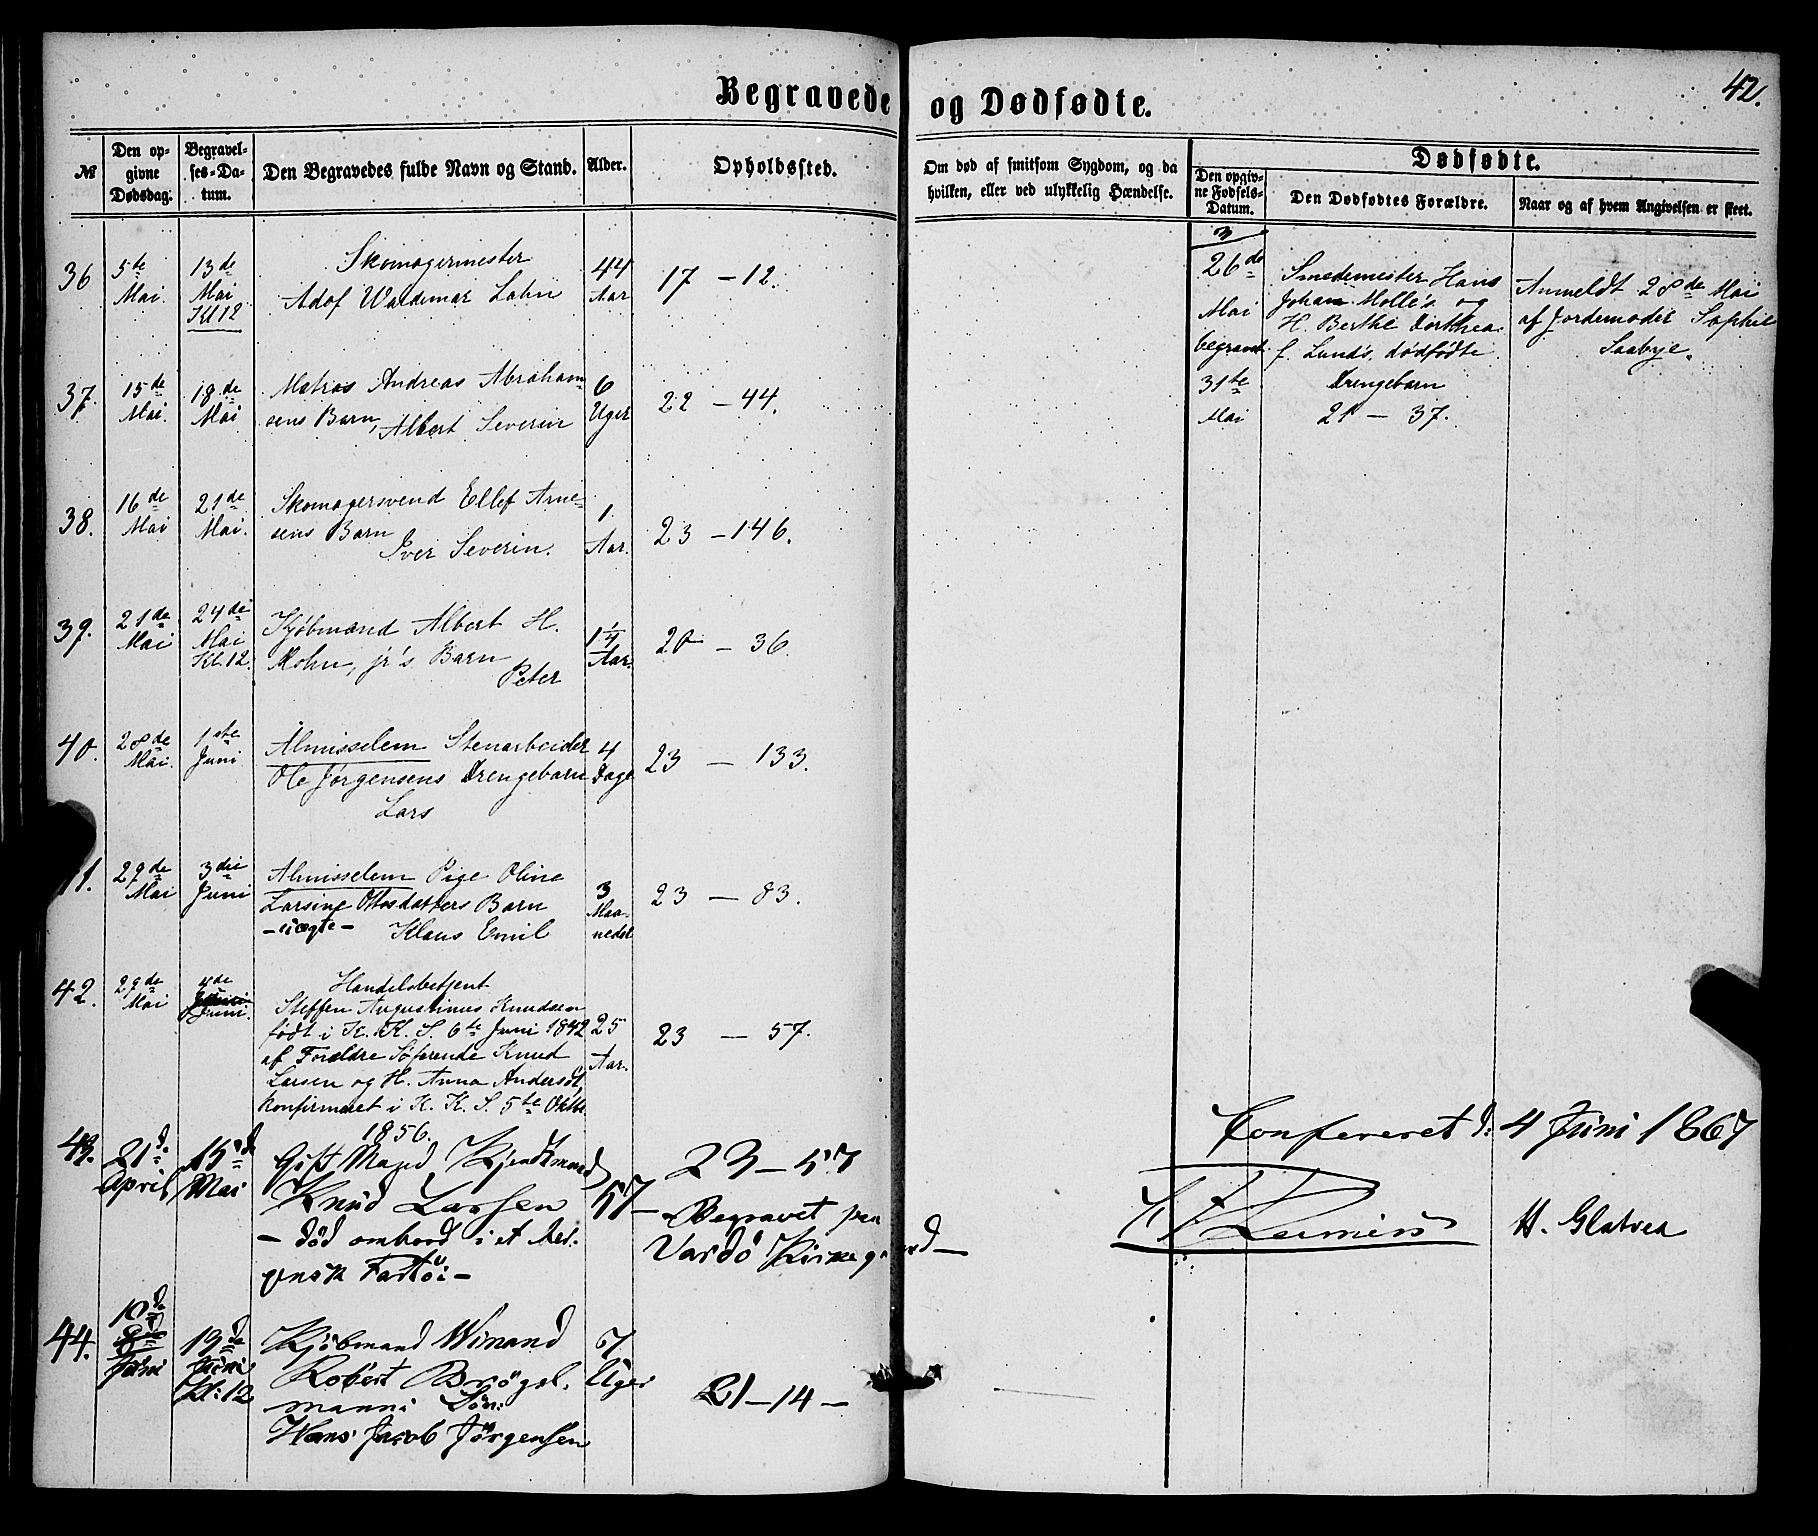 Begravede og Dødfødte.
42.
№
Den op-
givne
Dødsdag.
Begravel-
ses-Da-
tum.
Den Begravedes fulde Navn og Stand.
Alder.
Opholdssted.
Om død af smitsom Sygdom, og da
hvilken, eller ved ulykkelig Hændelse.
Dødfødte.
Den opgiv-
ne Fødsels-
Datum.
Den Dødfødtes Forældre.
Naar og af hvem Angivelsen er skeet.
36
5te
Mai.
13de
Mai
Kl 12
Skomagermester
Adof Waldemar Lahn
44
Aar
17 – 12.
37.
15de
Mai.
18de
Mai
Matros Andreas Abraham-
sens Barn, Albert Severin
6
Uger
22 – 44.
38.
16de
Mai
21de
Mai.
Skomagersvend Ellef Arne-
sens Barn
Iver Severin.
1
Aar.
23 – 146.
39.
21de
Mai
24de
Mai
Kl. 12.
Kjøbmand Albert H.
Mohn, jr's Barn
Peter
1 1/4
Aar.
20 – 36.
40.
28de
Mai.
1ste
Juni
Almisselem Stenarbeider
Ole Jørgensens Drengebarn
Lars
4
Dage
23 – 133.
41.
29de
Mai
3die
Juni
Almisselem Pige Oline
Larsine Ottosdatters Barn
– uægte – Klaus Emil
3
Maa-
neder
23 – 83.
42.
29de
Mai
4de
Juni.
Handelsbetjent
Steffen Augustinus Knudsen
født i K. K. S. 6te Juni 1842
af Forældre Søfarende Knud
Larsen og H. Anna Andersdt,
konfirmeret i K. K. S. 5te Oktbr.
1856.
25
Aar.
23 – 57.
43.
21d.
April
15d
Mai
Gift Mand Kjendtmand
Knud Larsen
– død ombord i et Ber-
gensk Fartøi –
57
23 – 57
– Begravet paa
Vardø Kirkegaard –
44.
10d
Juni
13de
Juni
kl: 12
Kjøbmand Winand
Robert Brögel-
manns Søn:
Hans Jacob Jørgensen
7
Uger
21 – 14 –
3
26de
Mai
begravet
31te
Mai
Smedemester Hans
Johan Molle's og
H. Berthe Dorthea
f. Lund's, dødfødte
Drengebarn
21 – 37.
Anmeldt 28de Mai
af Jordemoder Sophie
Saabye.
Confereret d: 4 Juni 1867